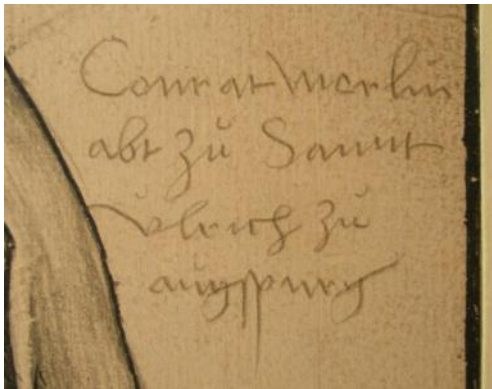 Conrat Morlin
abt zů Sannt
Vlrich zů
augspurg